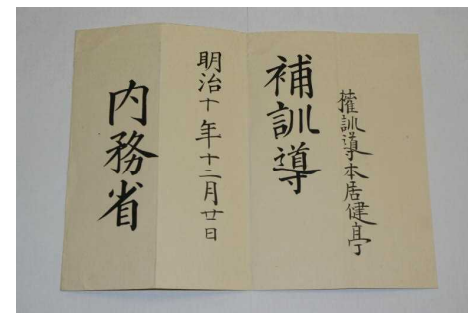 権訓導本居健亭
補訓導
明治十年十二月廿日
内務省